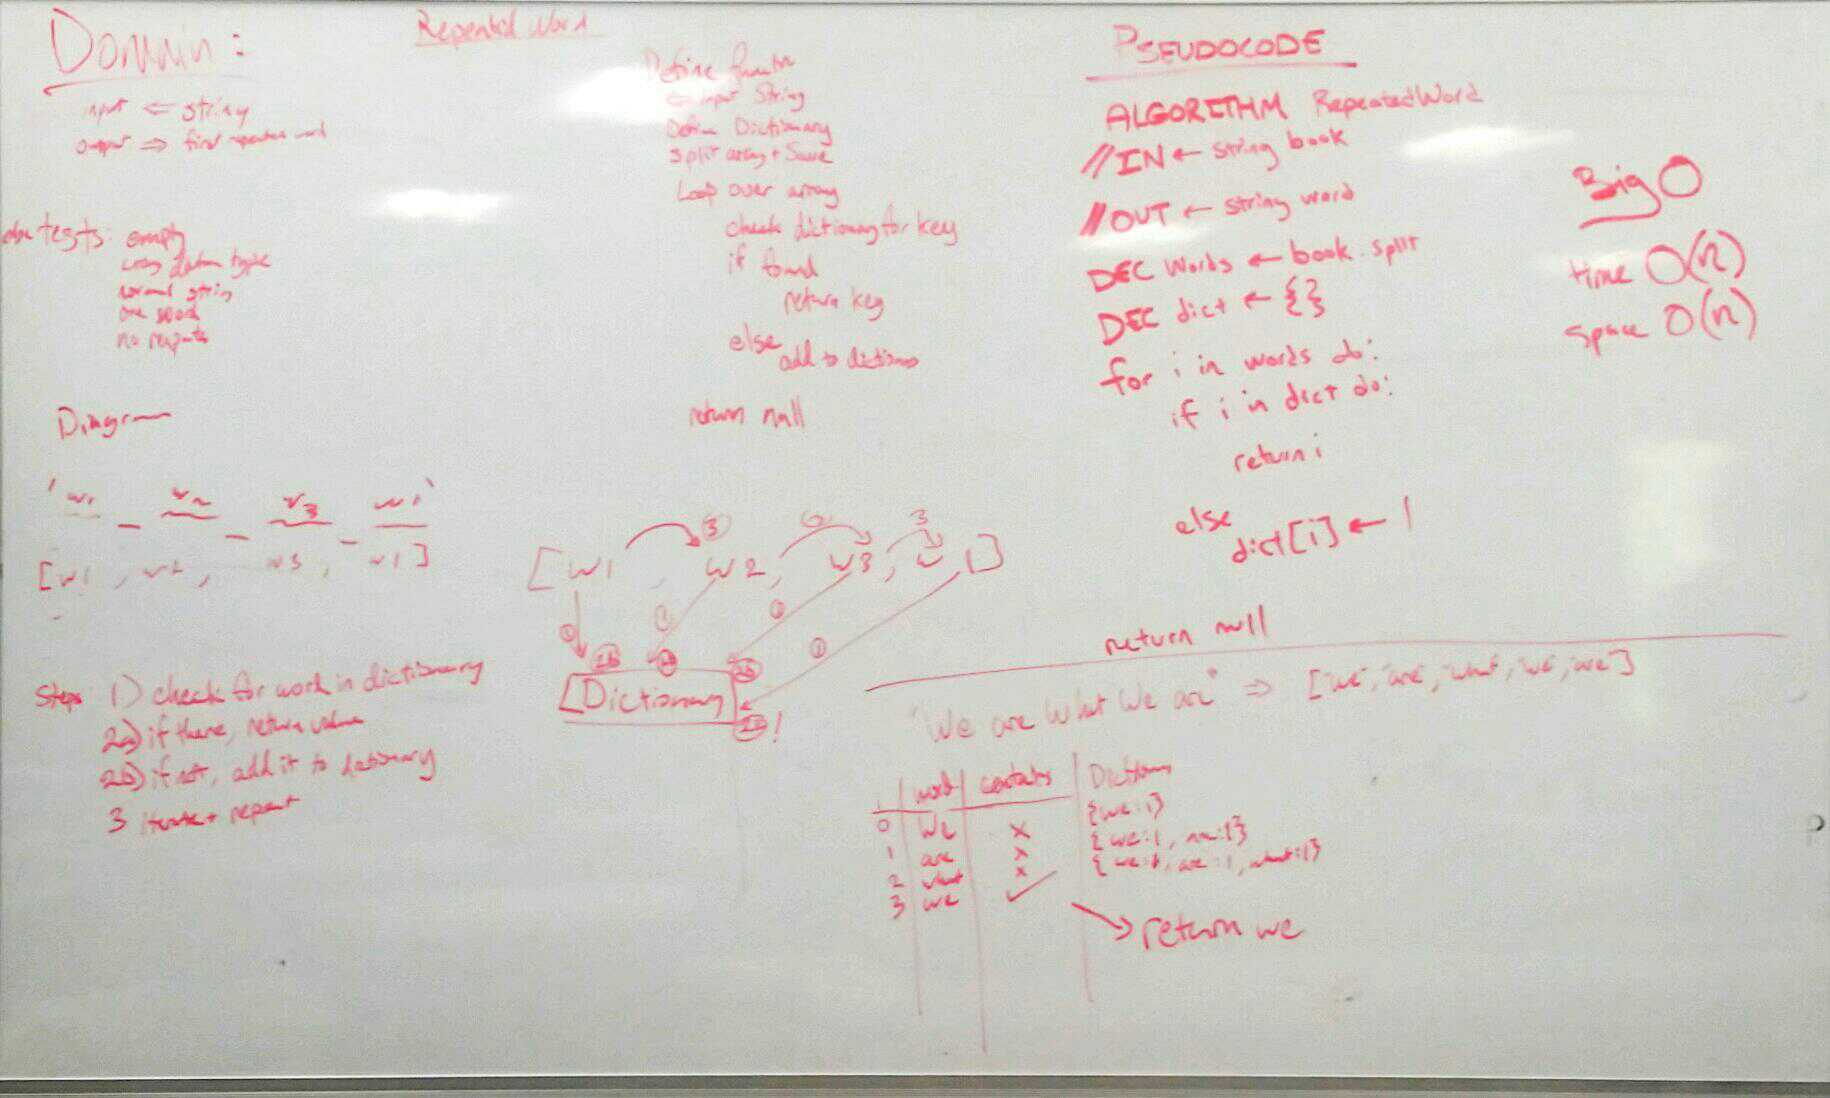 Domain:
input ⇐ string
output ⇒ first repeated word
tests: empty
wrong data type
normal string
one word
no repeats
Diagram
' w1 _ w2 _ w3 _ w1 '
[w1, w2, w3, w1]
Steps 1) check for word in dictionary
2a) if there, return value
2b) if not, add it to dictionary
3 iterate + repeat
Repeated Word
Define function
← input String
Define Dictionary
split array + Save
Loop over array
check dictionary for key
if found
return key
else
add to dictionary
return null
3
3
[w1, w2, w3, w1]
1
1
1
1
2b
2b
2b
[Dictionary]
2a!
PSEUDOCODE
ALGORITHM RepeatedWord
//IN ← string book
//OUT ← string word
DEC words ← book.split
DEC dict ← {}
for i in words do:
if i in dict do:
return i
else
dict[i] ← 1
return null
Big O
time O(n)
space O(n)
"We are what we are" ⇒ ["we", "are", "what", "we", "are"]
i word contains Dictionary
0 we x {we:1}
1 are x {we:1, are:1}
2 what x {we:1, are:1, what:1}
3 we ✓
return we